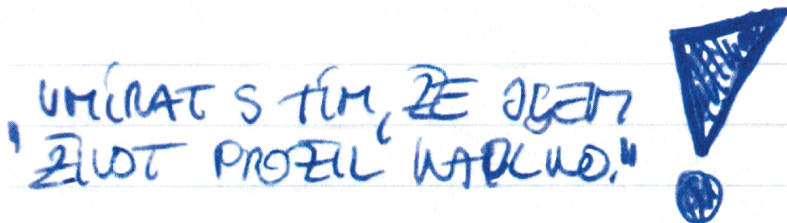 „UMÍRAT S TÍM, ŽE JSEM
ŽIVOT PROŽIL NAPLNO.“ !